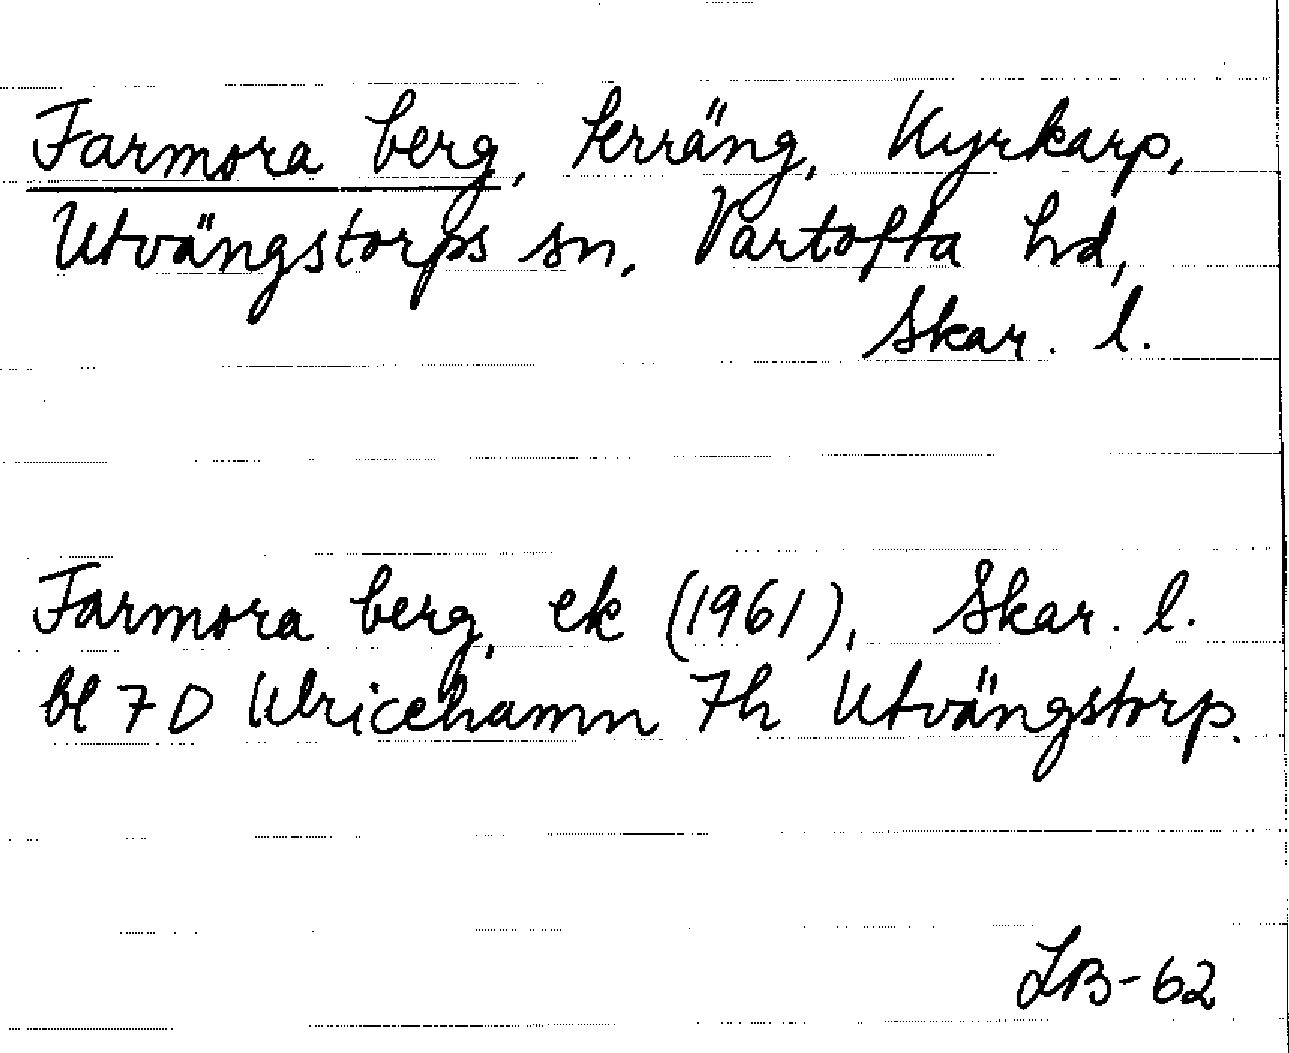 Farmora berg, terräng, Kyrkarp,
Utvängstorps sn, Vartofta hd,
Skar. l.
Farmora berg, ek (1961), Skar. l.
bl 7 D Ulricehamn 7h Utvängstorp.
LB-62